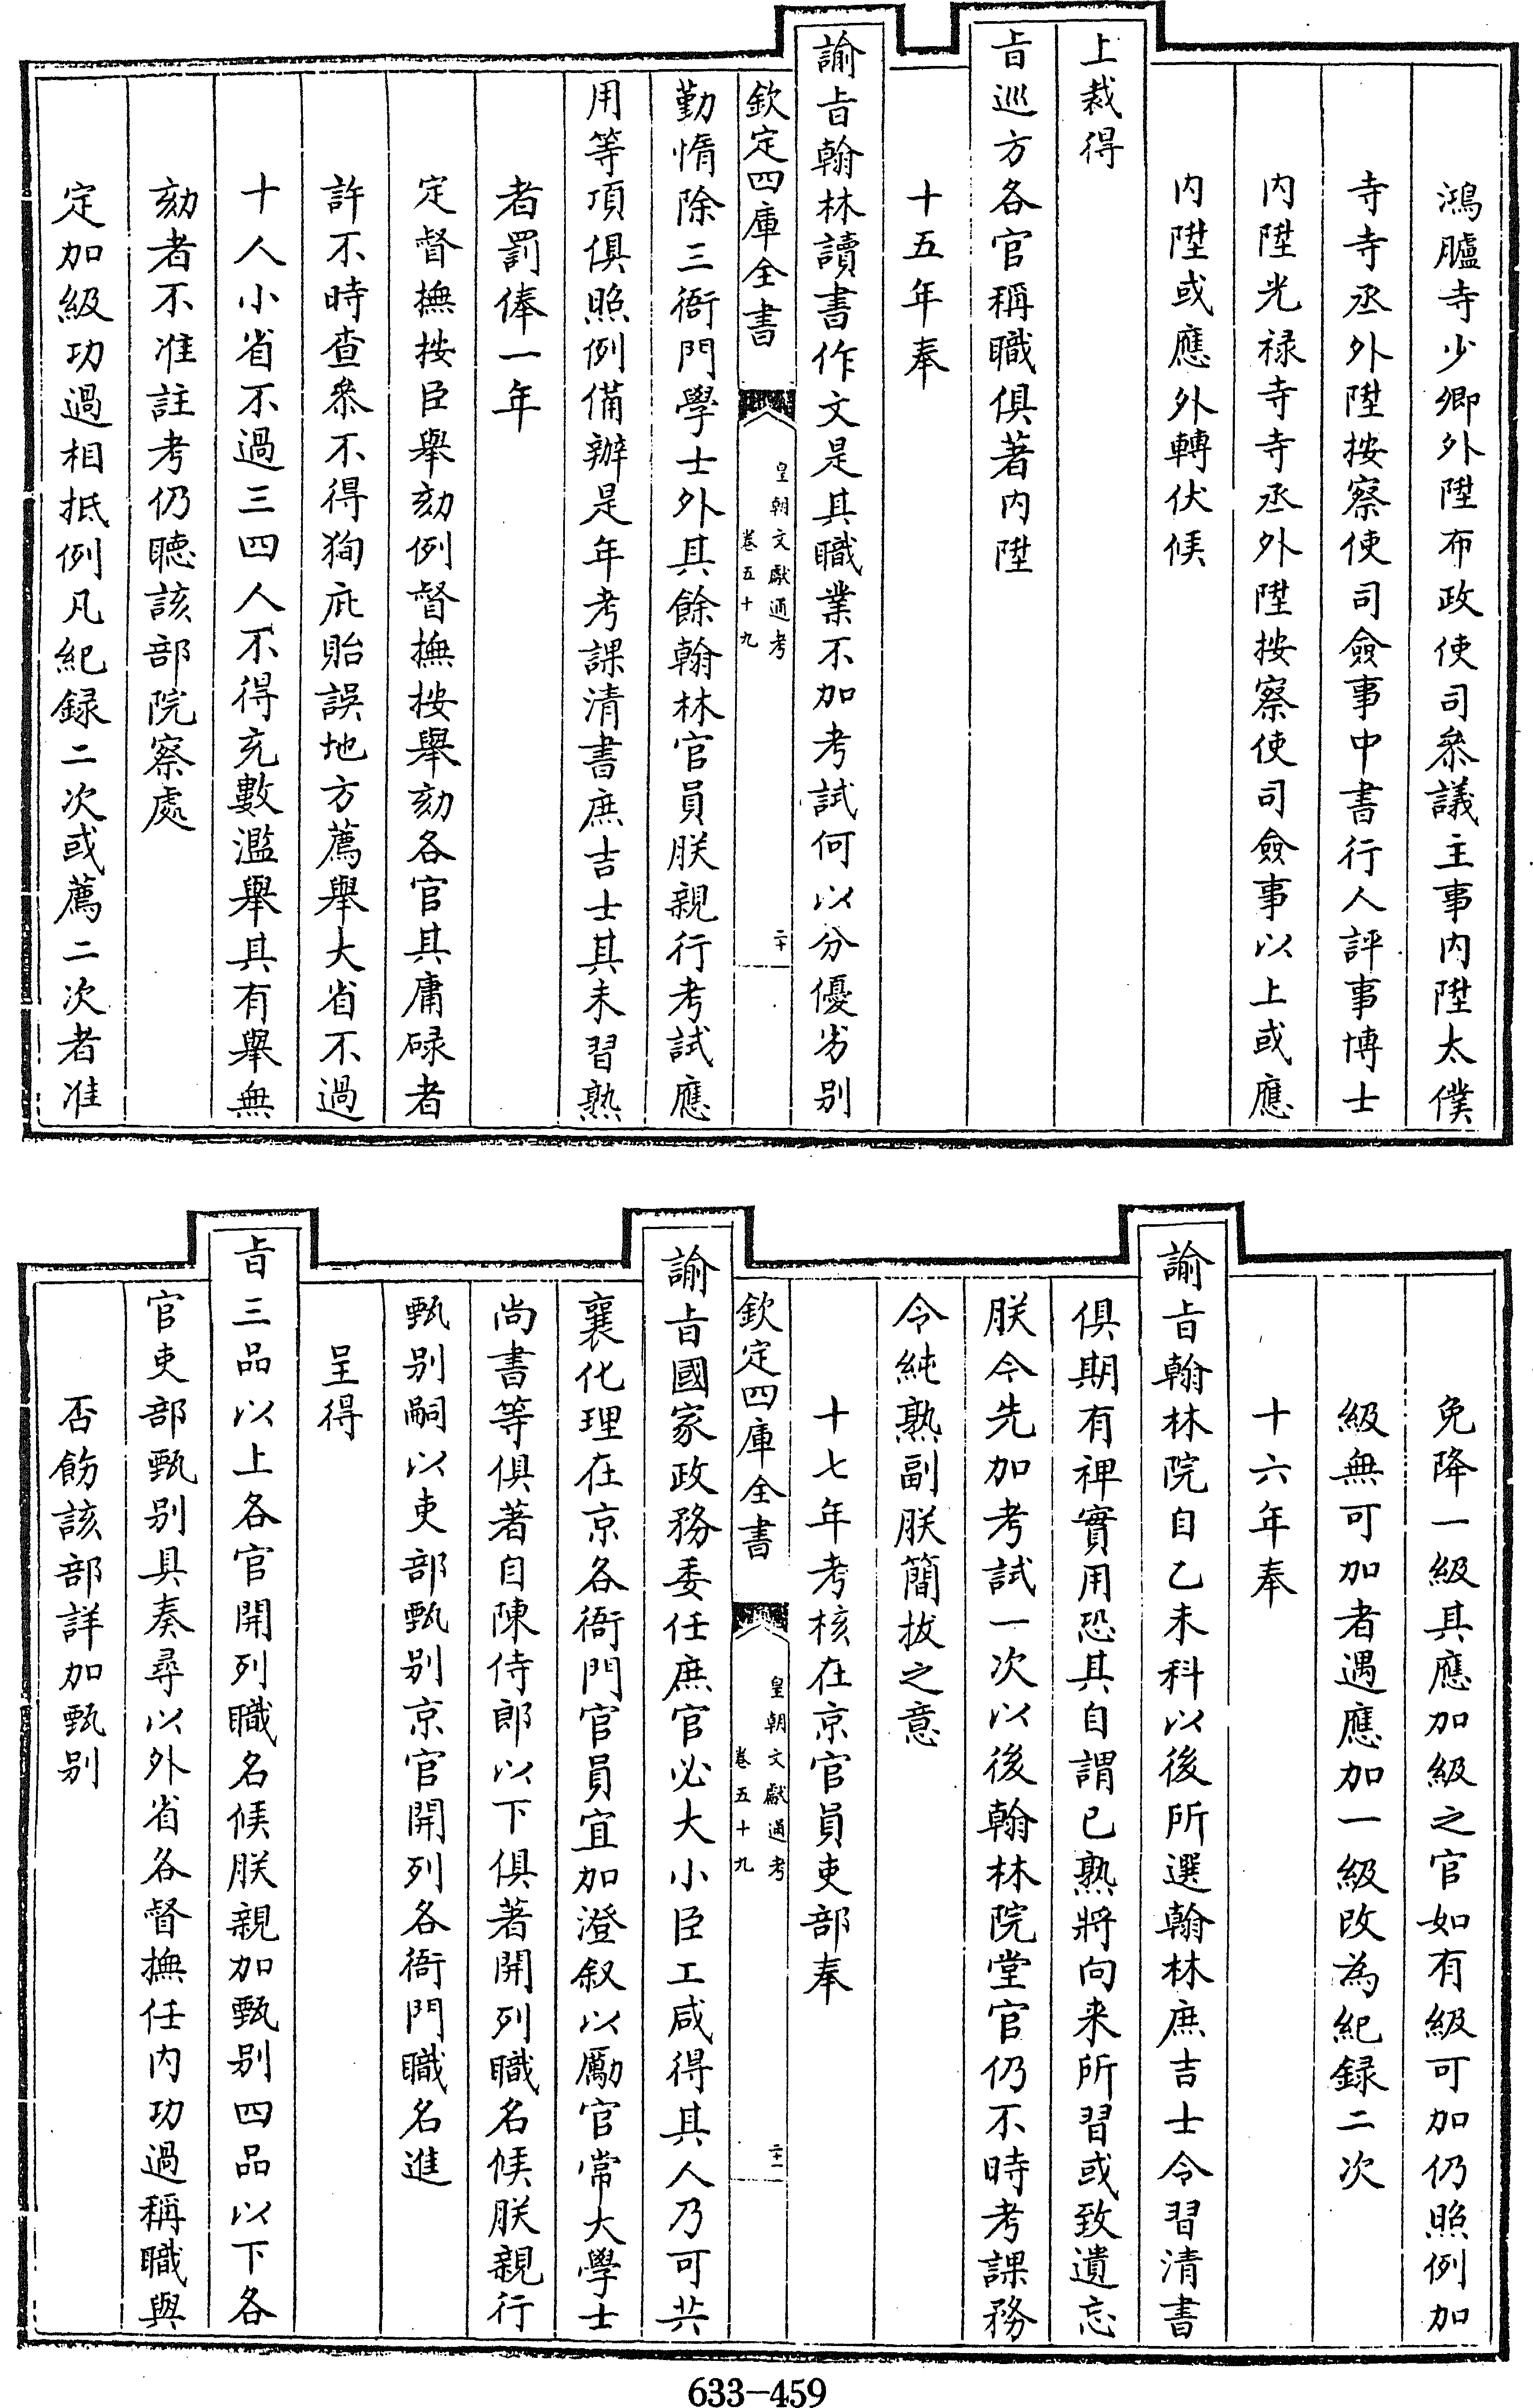 鴻臚寺少卿外陞布政使司叅議主事内陞太僕
寺寺丞外陞按察使司僉事中書行人評事博士
内陞光禄寺寺丞外陞按察使司僉事以上或應
内陞或應外轉伏候
上裁得
㫖巡方各官稱職俱著内陞
十五年奉
諭㫖翰林讀書作文是其職業不加考試何以分優劣别
欽定四庫全書
皇朝文獻通考
卷五十九
二十
勤惰除三衙門學士外其餘翰林官員朕親行考試應
用等項俱照例備辦是年考課清書庶吉士其未習熟
者罰俸一年
定督撫按臣舉劾例督撫按舉劾各官其庸碌者
許不時查叅不得狥庇貽誤地方薦舉大省不過
十人小省不過三四人不得充數濫舉具有舉無
劾者不准註考仍聽該部院察處
定加級功過相抵例凡紀録二次或薦二次者准
免降一級其應加級之官如有級可加仍照例加
級無可加者遇應加一級改為紀録二次
十六年奉
諭㫖翰林院自乙未科以後所選翰林庶吉士令習清書
俱期有禆實用恐其自謂已熟將向来所習或致遺忘
朕今先加考試一次以後翰林院堂官仍不時考課務
令純熟副朕簡拔之意
十七年考核在京官員吏部奉
欽定四庫全書
皇朝文獻通考
卷五十九
二十一
諭㫖國家政務委任庶官必大小臣工咸得其人乃可共
襄化理在京各衙門官員宜加澄叙以勵官常大學士
尚書等俱著自陳侍郎以下俱著開列職名候朕親行
甄别嗣以吏部甄别京官開列各衙門職名進
呈得
㫖三品以上各官開列職名候朕親加甄别四品以下各
官吏部甄别具奏尋以外省各督撫任内功過稱職與
否飭該部詳加甄别
633-459